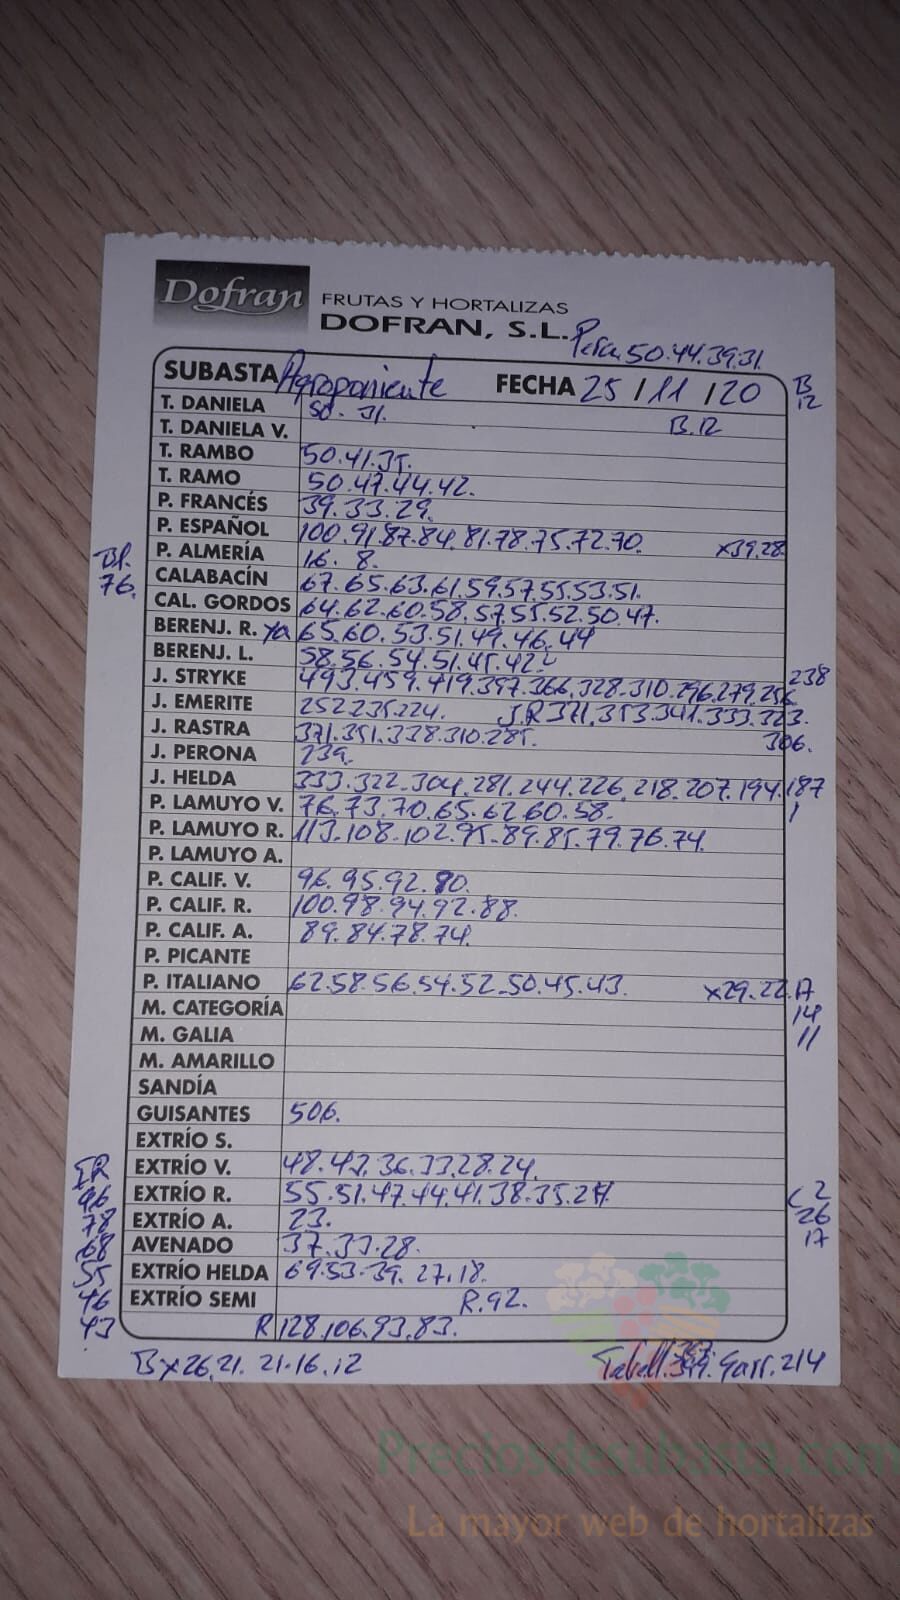 Dofran FRUTAS Y HORTALIZAS
DOFRAN, S.L. Pera 50.44.39.31.
SUBASTA Agroponiente FECHA 25 / 11 / 20 B
12
T. DANELA 50. 31. B.12
T. DANIELA V.
T. RAMBO 50.41.35.
T. RAMO 50.47.44.42.
P. FRANCÉS 39.33.29.
P. ESPAÑOL 100.91.87.84.81.78.75.72.70. x39.28
P. ALMERÍA 16. 8.
Bl.
76.
CALABACÍN 67.65.63.61.59.57.55.53.51.
CAL. GORDOS 64.62.60.58.57.55.52.50.47.
BERENJ. R. ya 65.60.53.51.49.46.44
BERENJ. L. 58.56.54.51.45.42
J. STRYKE 493.459.419.397.366.328.310.296.279.256 238
J. EMERITE 252.235.224. J.R 371.353.341.333.323.
306.
J. RASTRA 371.351.338.310.285.
J. PERONA 239.
J. HELDA 333.322.304.281.244.226.218.207.194.187
P. LAMUYO V. 76.73.70.65.62.60.58.
P. LAMUYO R. 113.108.102.95.89.85.79.76.74.
P. LAMUYO A.
P. CALIF. V. 96.95.92.90.
P. CALIF. R. 100.98.94.92.88.
P. CALIF. A. 89.84.78.74.
P. PICANTE
P. ITALIANO 62.58.56.54.52.50.45.43. x29.22.17
14
11
M. CATEGORÍA
M. GALIA
M. AMARILLO
SANDÍA
GUISANTES 506.
EXTRÍO S.
EXTRÍO V. 48.43.36.33.28.24.
EXTRÍO R. 55.51.47.44.41.38.35.27
EXTRÍO A. 23.
AVENADO 37.33.28.
EXTRÍO HELDA 69.53.39.27.18.
EXTRÍO SEMI R.92.
R 128.106.93.83.
96
78
68
55
46
43
26
17
Bx26.21. 21.16.12
Garr.214
Preciosdesubasta.com
La mayor web de hortalizas